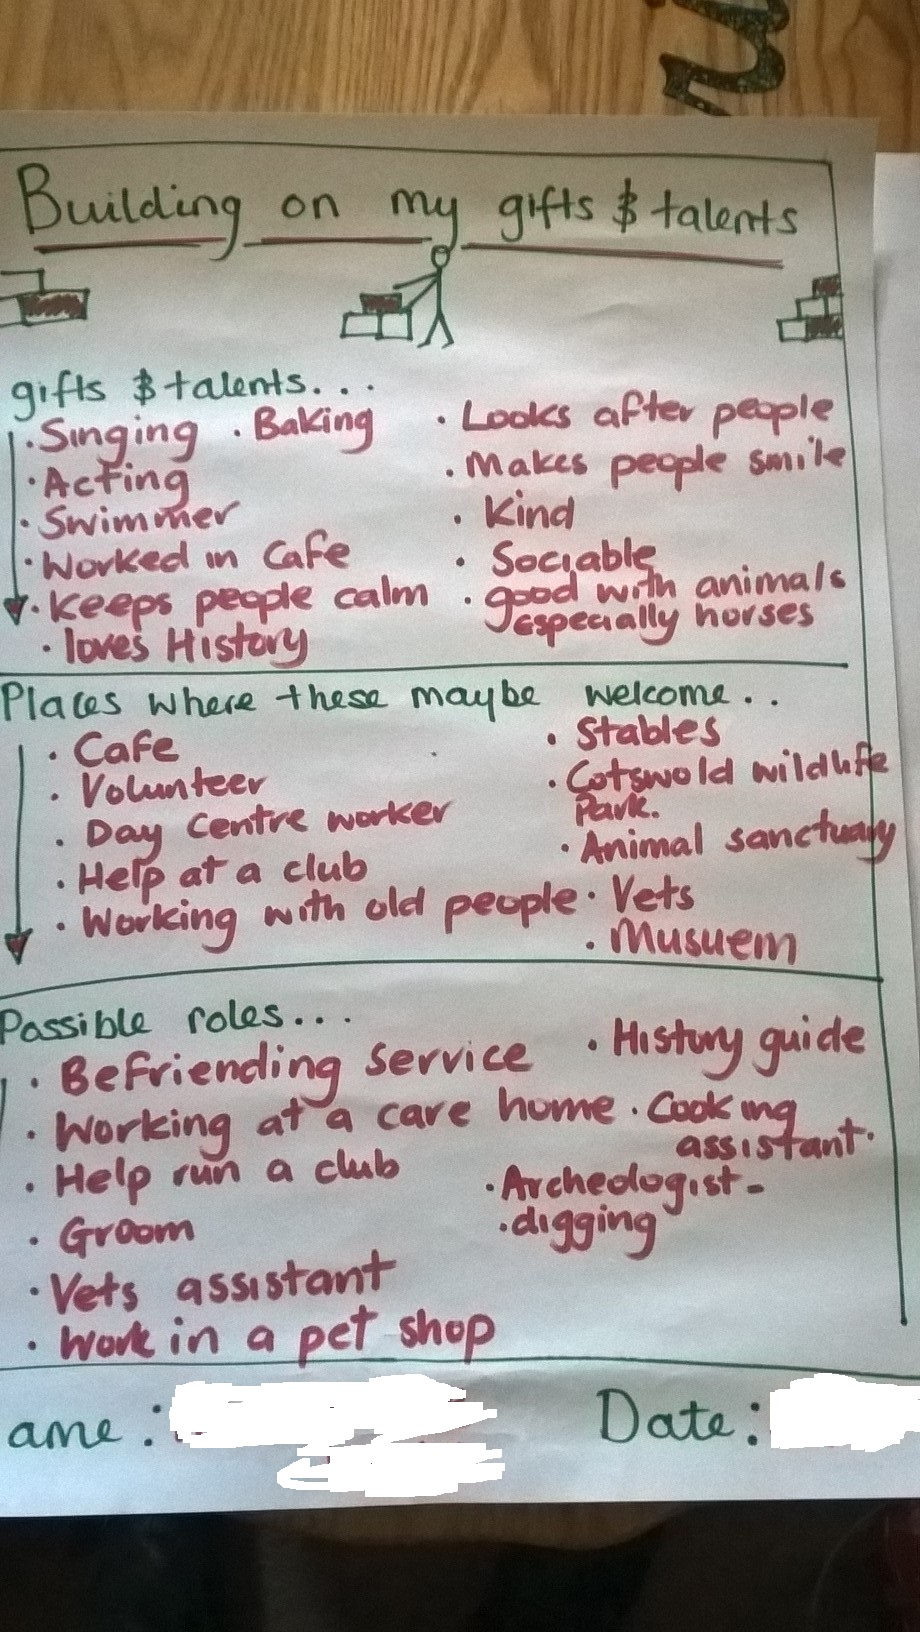 Building on my gifts & talents
gifts & talents...
· Singing · Baking
· Acting
· Swimmer
· Worked in Cafe
· Keeps people calm
· loves History
· Looks after people
· Makes people smile
· Kind
· Sociable
· good with animals
especially horses
Places where these maybe welcome..
· Cafe
· Volunteer
· Day Centre worker
· Help at a club
· Working with old people
· Stables
· Cotswold wildlife
Park.
· Animal sanctuary
· Vets
· Musuem
Possible roles...
· Befriending service
· Working at a care home
· Help run a club
· Groom
· Vets assistant
· Work in a pet shop
· History guide
· Cooking
assistant.
· Archeologist-
· digging
ame:
Date: